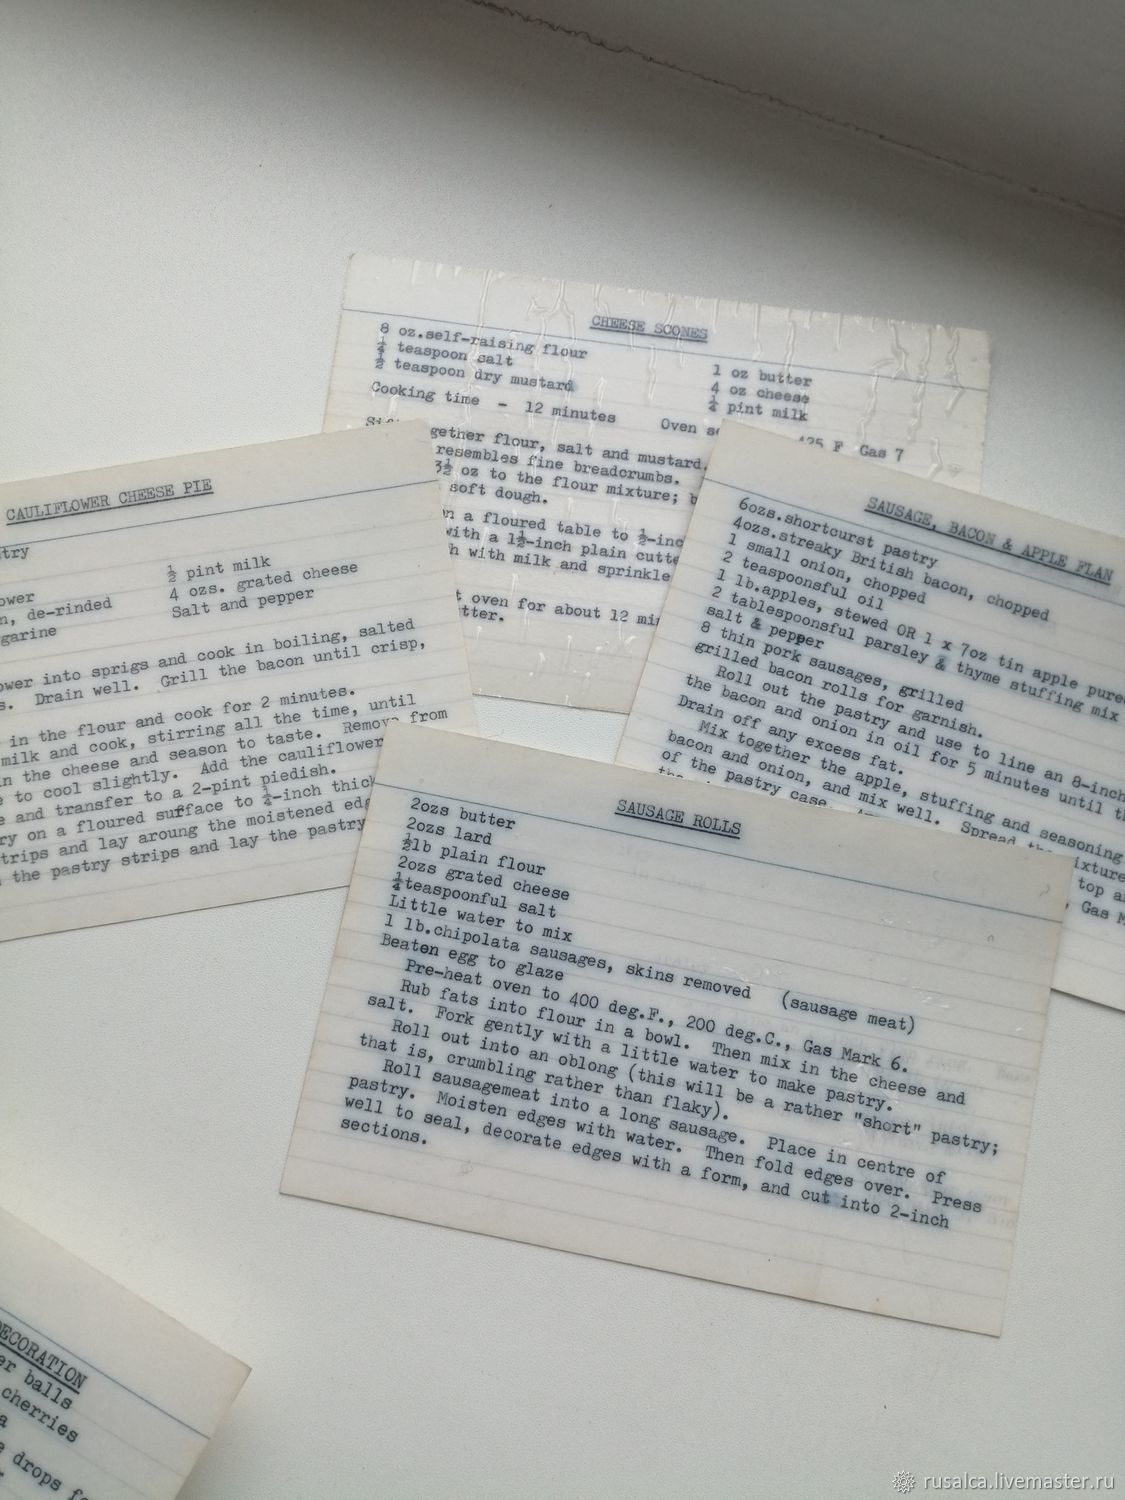 CHEESE SCONES
8 oz.self-raising flour
¼ teaspoon salt
½ teaspoon dry mustard
1 oz butter
4 oz cheese
¼ pint milk
Cooking time - 12 minutes Oven 425 F Gas 7
gether flour, salt and mustard.
resembles fine breadcrumbs.
3½ oz to the flour mixture;
soft dough.
a floured table to ½-inc
with a 1½-inch plain cutte
with milk and sprinkle
oven for about 12
tter.
CAULIFLOWER CHEESE PIE
try
ower
n, de-rinded
garine
½ pint milk
4 ozs. grated cheese
Salt and pepper
ower into sprigs and cook in boiling, salted
s. Drain well. Grill the bacon until crisp,
in the flour and cook for 2 minutes.
milk and cook, stirring all the time, until
in the cheese and season to taste. Remove from
e to cool slightly. Add the cauliflower
e and transfer to a 2-pint piedish.
ry on a floured surface to ¼-inch thick
trips and lay aroung the moistened edg
the pastry strips and lay the pastry
SAUSAGE, BACON & APPLE FLAN
6ozs.shortcurst pastry
4ozs.streaky British bacon, chopped
1 small onion, chopped
2 teaspoonsful oil
1 lb.apples, stewed OR 1 x 7oz tin apple puree
2 tablespoonsful parsley & thyme stuffing mix
salt & pepper
8 thin pork sausages, grilled
grilled bacon rolls for garnish.
Roll out the pastry and use to line an 8-inch
the bacon and onion in oil for 5 minutes until th
Drain off any excess fat.
Mix together the apple, stuffing and seasoning
bacon and onion, and mix well. Spread the ixture
of the pastry case. top a
, Gas M
SAUSAGE ROLLS
2ozs butter
2ozs lard
½lb plain flour
2ozs grated cheese
¼teaspoonful salt
Little water to mix
1 lb.chipolata sausages, skins removed (sausage meat)
Beaten egg to glaze
Pre-heat oven to 400 deg.F., 200 deg.C., Gas Mark 6.
Rub fats into flour in a bowl. Then mix in the cheese and
salt. Fork gently with a little water to make pastry.
Roll out into an oblong (this will be a rather "short" pastry;
that is, crumbling rather than flaky).
Roll sausagemeat into a long sausage. Place in centre of
pastry. Moisten edges with water. Then fold edges over. Press
well to seal, decorate edges with a form, and cut into 2-inch
sections.
ECORATION
er balls
cherries
a
e drops fo
rusalca.livemaster.ru